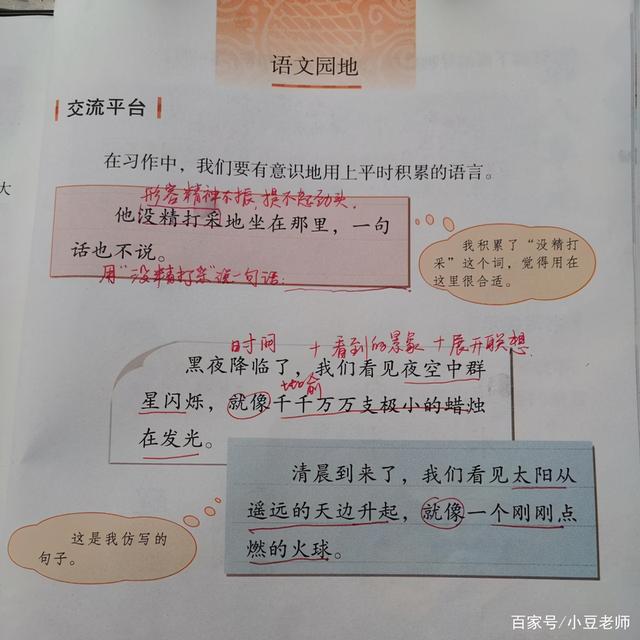 语文园地
交流平台
在习作中，我们要有意识地用上平时积累的语言。
大
形容精神不振，提不起劲头。
他没精打采地坐在那里，一句
话也不说。
用“没精打采”说一句话：
我积累了“没精打
采”这个词，觉得用在
这里很合适。
时间 + 看到的景象 + 展开联想
黑夜降临了，我们看见夜空中群
星闪烁，就像千千万万支极小的蜡烛
在发光。
清晨到来了，我们看见太阳从
遥远的天边升起，就像一个刚刚点
燃的火球。
这是我仿写的
句子。
百家号/小豆老师